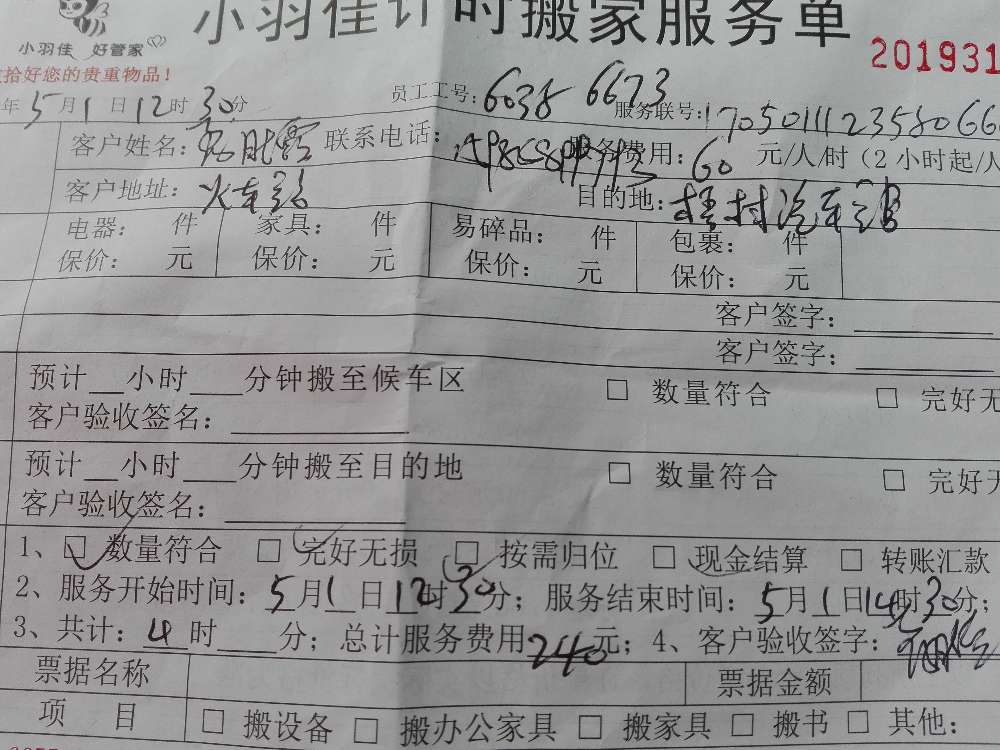 小羽佳计时搬家服务单
小羽佳 好管家
拾好您的贵重物品！
201931
年5月1日12时30分 员工工号：6038 6673 服务联号：170501112358066
客户姓名： 联系电话： 服务费用：60元/人/时（2小时起/人
客户地址：火车站 目的地：梧村汽车站
电器： 件 家具： 件 易碎品： 件 包裹： 件
保价： 元 保价： 元 保价： 元 保价： 元
客户签字：
客户签字：
预计__小时___分钟搬至候车区 □ 数量符合 □ 完好无
客户验收签名：
预计__小时___分钟搬至目的地 □ 数量符合 □ 完好无
客户验收签名：
1、□ 数量符合 □ 完好无损 □ 按需归位 □ 现金结算 □ 转账汇款
2、服务开始时间：5月1日12时30分；服务结束时间：5月1日14时30分；
3、共计：4时____分；总计服务费用240元；4、客户验收签字：
票据名称 票据金额
项 目 □ 搬设备 □ 搬办公家具 □ 搬家具 □ 搬书 □ 其他：